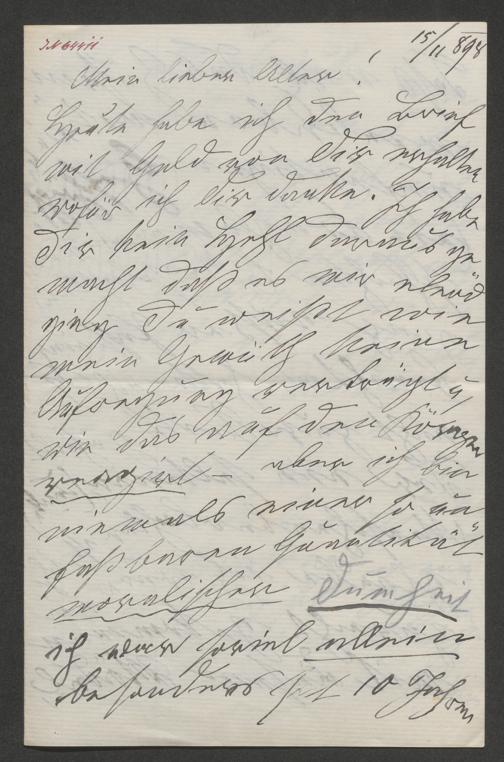 15/11 898
Mein lieber Alter!
Heute habe ich den Brief
mit Geld von Dir erhalten
wofür ich Dir danke. Ich habe
Dir kein Hehl daraus ge
macht daß es mir elend
ging Du weißt wie
mein Gemüth keine
Aufregung verträgt u
wie das auf den Körper
reagirt – aber ich bin
niemals einer so un
faßbaren Qualität
moralischer Dumheit
ich war soviel allein
besonders seit 10 Jahren